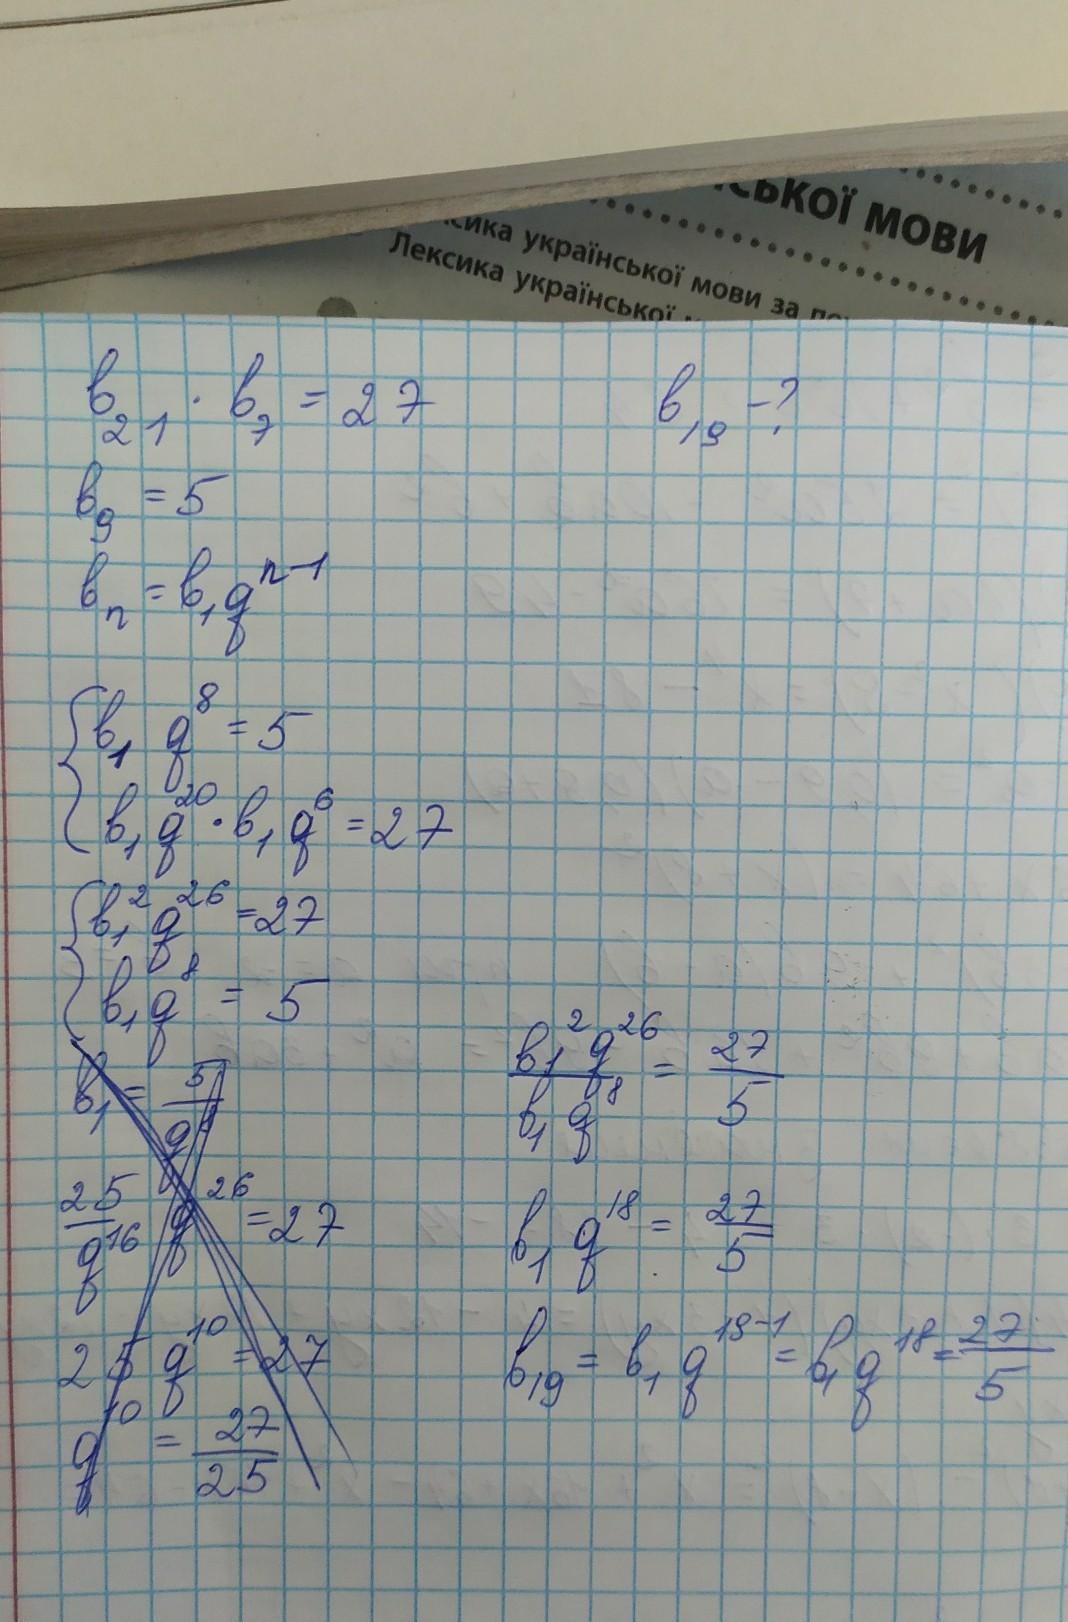 ської мови
ксика української мови за
Лексика української
b₂₁ · b₇ = 27
b₁₉ - ?
b₉ = 5
bₙ = b₁qⁿ⁻¹
{ b₁ q⁸ = 5
b₁q²⁰ · b₁q⁶ = 27
{ b₁² q²⁶ = 27
b₁q⁸ = 5
b₁ = 5/q⁸
25/q¹⁶ q²⁶ = 27
25 q¹⁰ = 27
q¹⁰ = 27/25
b₁² q²⁶ / b₁ q⁸ = 27/5
b₁ q¹⁸ = 27/5
b₁₉ = b₁ q¹⁹⁻¹ = b₁q¹⁸ = 27/5